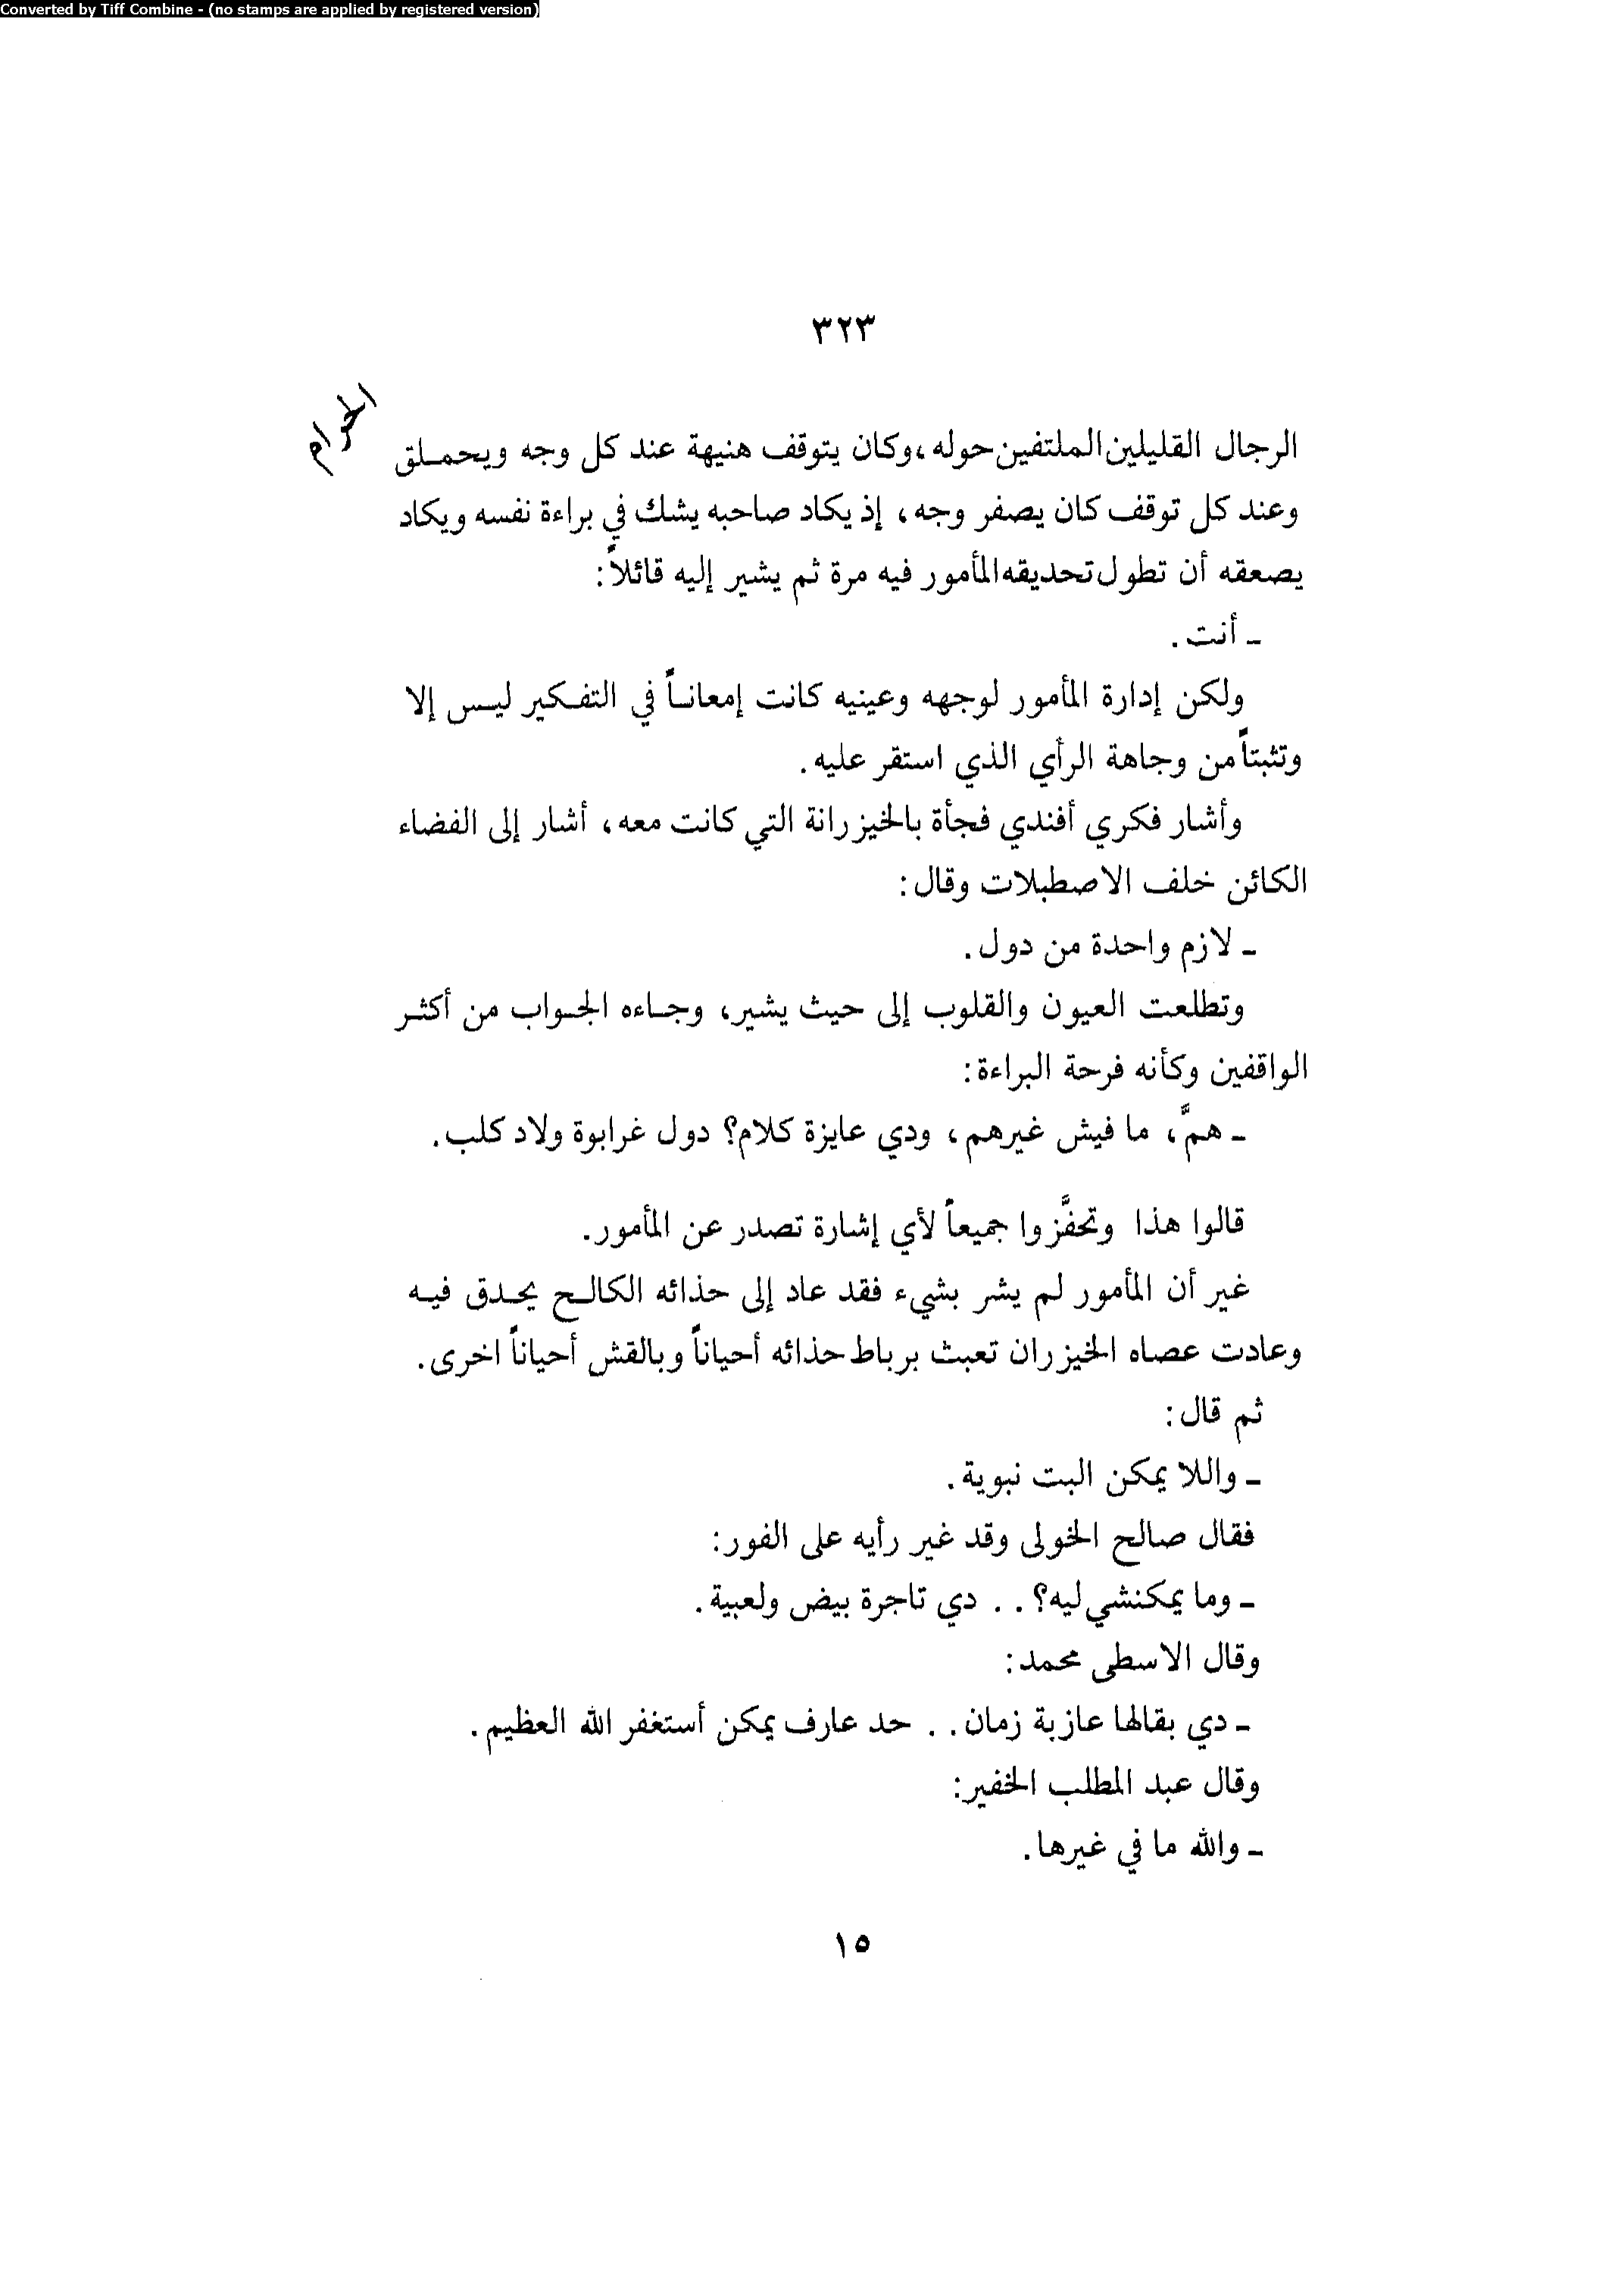 Converted by Tiff Combine - (no stamps are applied by registered version)
٣٢٣
الحرام
الرجال القليلين الملتفين حوله، وكان يتوقف هنيهة عند كل وجه ويحملق
وعند كل توقف كان يصفر وجه، إذ يكاد صاحبه يشك في براءة نفسه ويكاد
يصعقه أن تطول تحديقه المأمور فيه مرة ثم يشير إليه قائلاً:
ـ أنت.
ولكن إدارة المأمور لوجهه وعينيه كانت إمعاناً في التفكير ليس إلا
وتثبتاً من وجاهة الرأي الذي استقر عليه.
وأشار فكري أفندي فجأة بالخيزرانة التي كانت معه، أشار إلى الفضاء
الكائن خلف الاصطبلات وقال:
ـ لازم واحدة من دول.
وتطلعت العيون والقلوب إلى حيث يشير، وجاءه الجواب من أكثر
الواقفين وكأنه فرحة البراءة:
ـ همَّ، ما فيش غيرهم، ودي عايزة كلام؟ دول غرابوة ولاد كلب.
قالوا هذا وتحفَّزوا جميعاً لأي إشارة تصدر عن المأمور.
غير أن المأمور لم يشر بشيء فقد عاد إلى حذائه الكالح يحدق فيه
وعادت عصاه الخيزران تعبث برباط حذائه أحياناً وبالقش أحياناً اخرى.
ثم قال:
ـ واللا يمكن البت نبوية.
فقال صالح الخولى وقد غير رأيه على الفور:
ـ وما يمكنشي ليه؟.. دي تاجرة بيض ولعبية.
وقال الاسطى محمد:
ـ دي بقالها عازبة زمان.. حد عارف يمكن أستغفر الله العظيم.
وقال عبد المطلب الخفير:
ـ والله ما في غيرها.
١٥